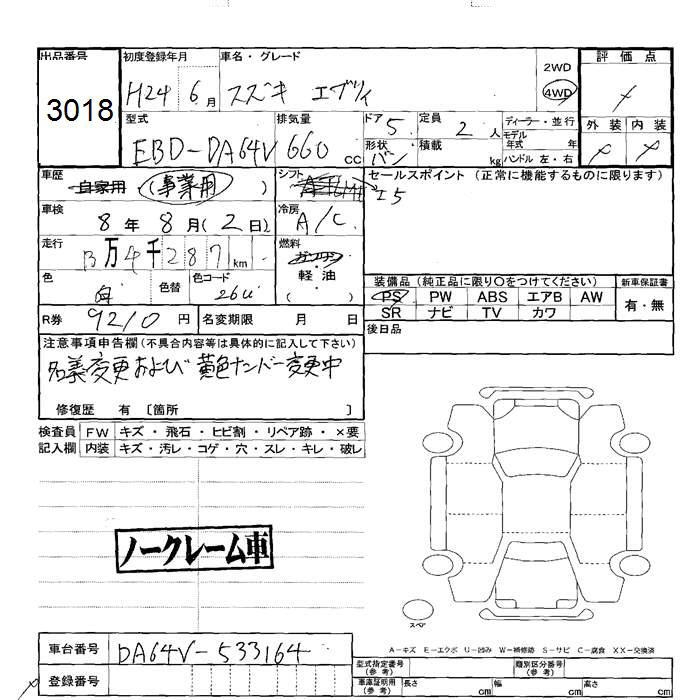 出品番号
3018
初度登録年月
H24 6月
車名・グレード
スズキ エブリィ
2WD
4WD
評価点
外装 内装
型式
EBD-DA64V
排気量
660 cc
ドア 5
定員 2人
ディーラー・並行
モデル年式 年
形状 バン
積載 kg
ハンドル 左・右
車歴
自家用 (事業用)
シフト
車検
8年 8月(2日)
冷房
A/C
走行
13万4千287km
燃料
ガソリン
軽・油
( )
色
白
色替
色コード
26U
R券 9210円
名変期限 月 日
セールスポイント(正常に機能するものに限ります)
装備品(純正品に限り○をつけてください)
PS PW ABS エアB AW
SR ナビ TV カワ
新車保証書
有・無
後日品
注意事項申告欄(不具合内容等は具体的に記入して下さい)
名義変更および黄色ナンバー変更中
修復歴 有 〔箇所 〕
検査員 FW キズ・飛石・ヒビ割・リペア跡・×要
記入欄 内装 キズ・汚レ・コゲ・穴・スレ・キレ・破レ
ノークレーム車
スペア
A-キズ E-エクボ U-凹み W-補修跡 S-サビ C-腐食 XX-交換済
車台番号 DA64V-533164
登録番号
型式指定番号(参考)
類別区分番号(参考)
車庫証明用(参考) 長さ cm 幅 cm 高さ cm